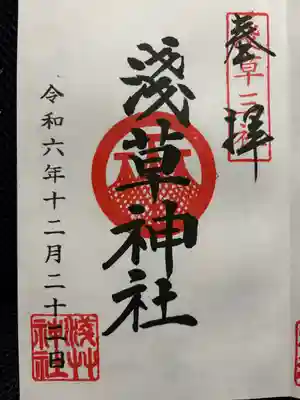 奉拝
淺草二社
淺草神社
令和六年十二月二十二日
淺草神社